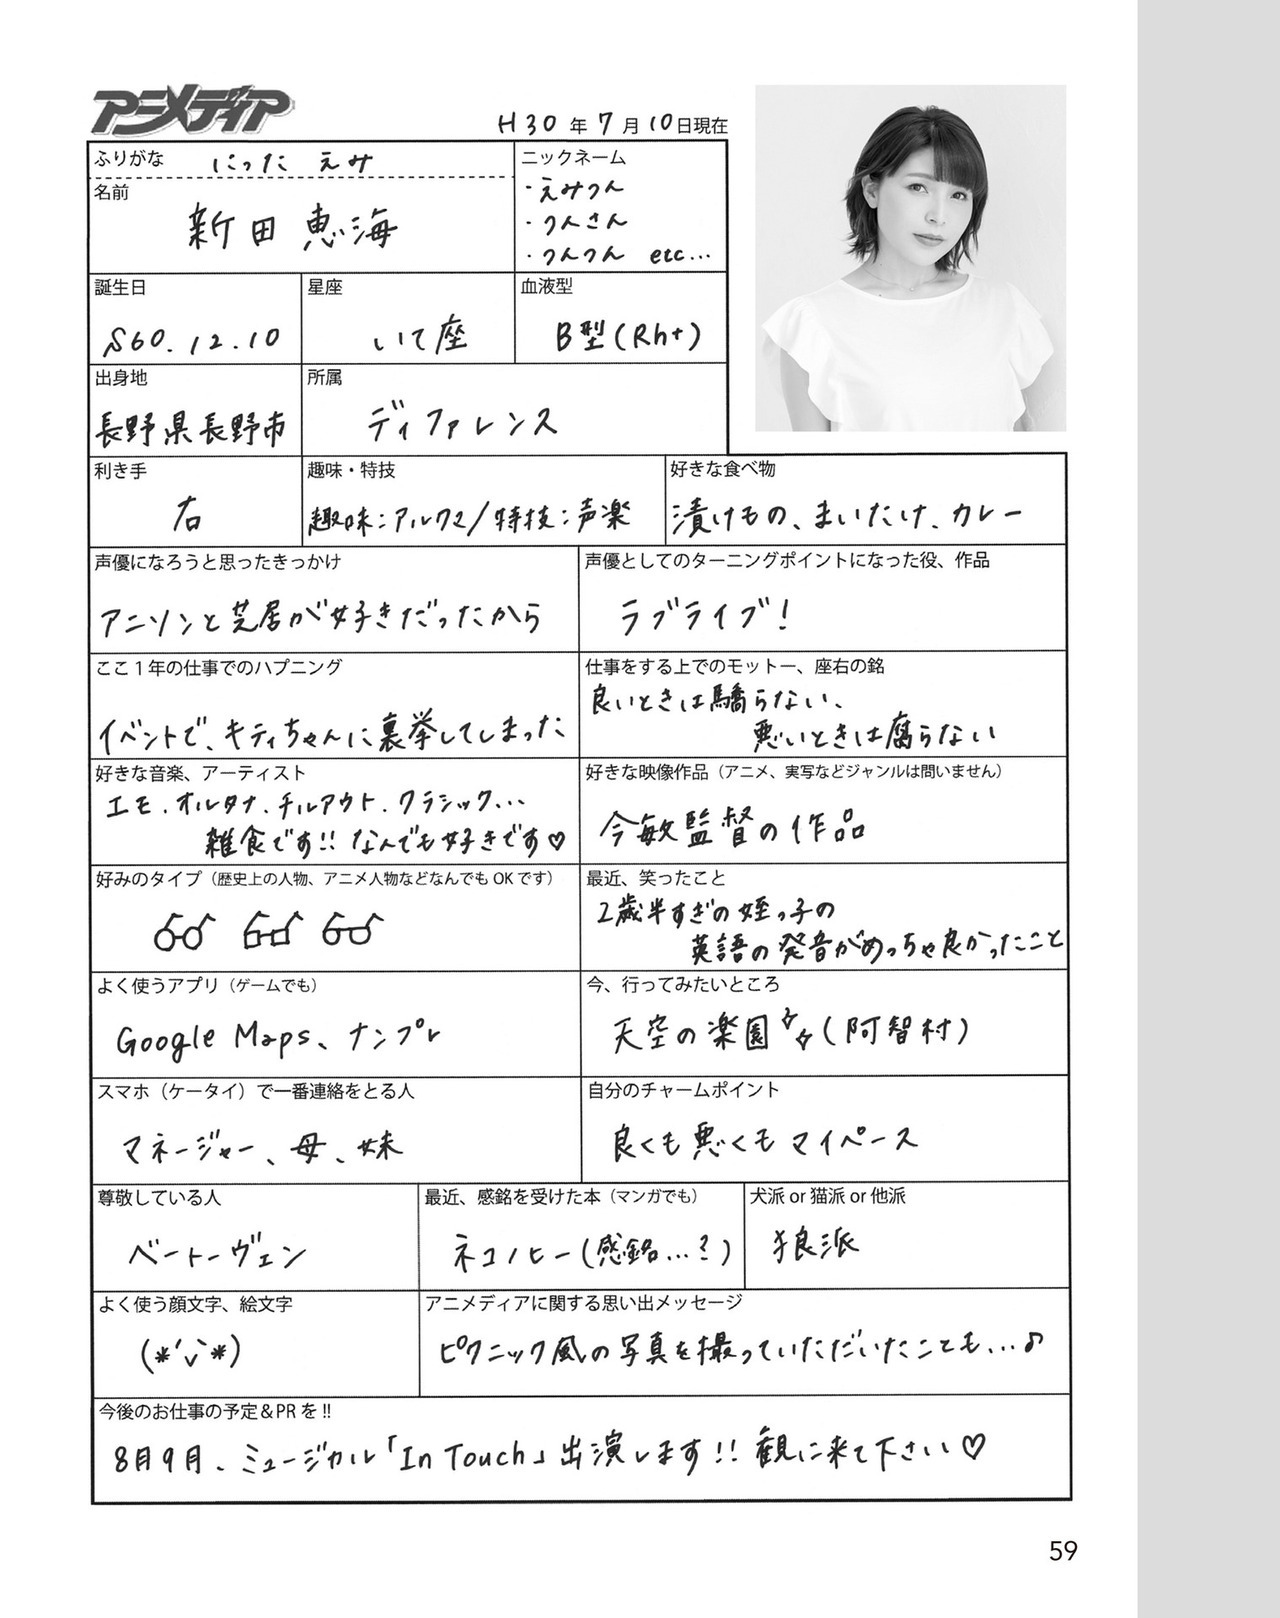 アニメディア
H30年7月10日現在
ふりがな にった えみ
名前
新田 恵海
ニックネーム
・えみつん
・つんさん
・つんつん etc...
誕生日
S60.12.10
星座
いて座
血液型
B型(Rh+)
出身地
長野県長野市
所属
ディファレンス
利き手
右
趣味・特技
趣味:アルクマ/特技:声楽
好きな食べ物
漬けもの、まいたけ、カレー
声優になろうと思ったきっかけ
アニソンと芝居が好きだったから
声優としてのターニングポイントになった役、作品
ラブライブ!
ここ1年の仕事でのハプニング
イベントで、キティちゃんに裏拳してしまった
仕事をする上でのモットー、座右の銘
良いときは驕らない、
悪いときは腐らない
好きな音楽、アーティスト
エモ.オルタナ.チルアウト.クラシック...
雑食です!!なんでも好きです♡
好きな映像作品(アニメ、実写などジャンルは問いません)
今敏監督の作品
好みのタイプ(歴史上の人物、アニメ人物などなんでもOKです)
最近、笑ったこと
2歳半すぎの姪っ子の
英語の発音がめっちゃ良かったこと
よく使うアプリ(ゲームでも)
Google Maps、ナンプレ
今、行ってみたいところ
天空の楽園(阿智村)
スマホ(ケータイ)で一番連絡をとる人
マネージャー、母、妹
自分のチャームポイント
良くも悪くもマイペース
尊敬している人
ベートーヴェン
最近、感銘を受けた本(マンガでも)
ネコノヒー(感銘...?)
犬派or猫派or他派
狼派
よく使う顔文字、絵文字
(*´v`*)
アニメディアに関する思い出メッセージ
ピクニック風の写真を撮っていただいたことも...♪
今後のお仕事の予定&PRを!!
8月9月、ミュージカル「In Touch」出演します!!観に来て下さい♡
59